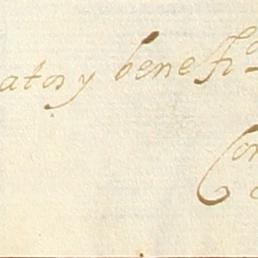 atos y benefi.o
Con